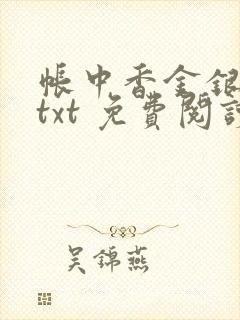 帳中香金銀
txt 免費閱讀
吳錦燕